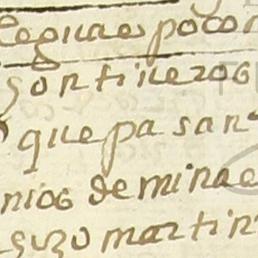 leguaes poco
gontiueros
que pasan
nios de minae
guzo martin